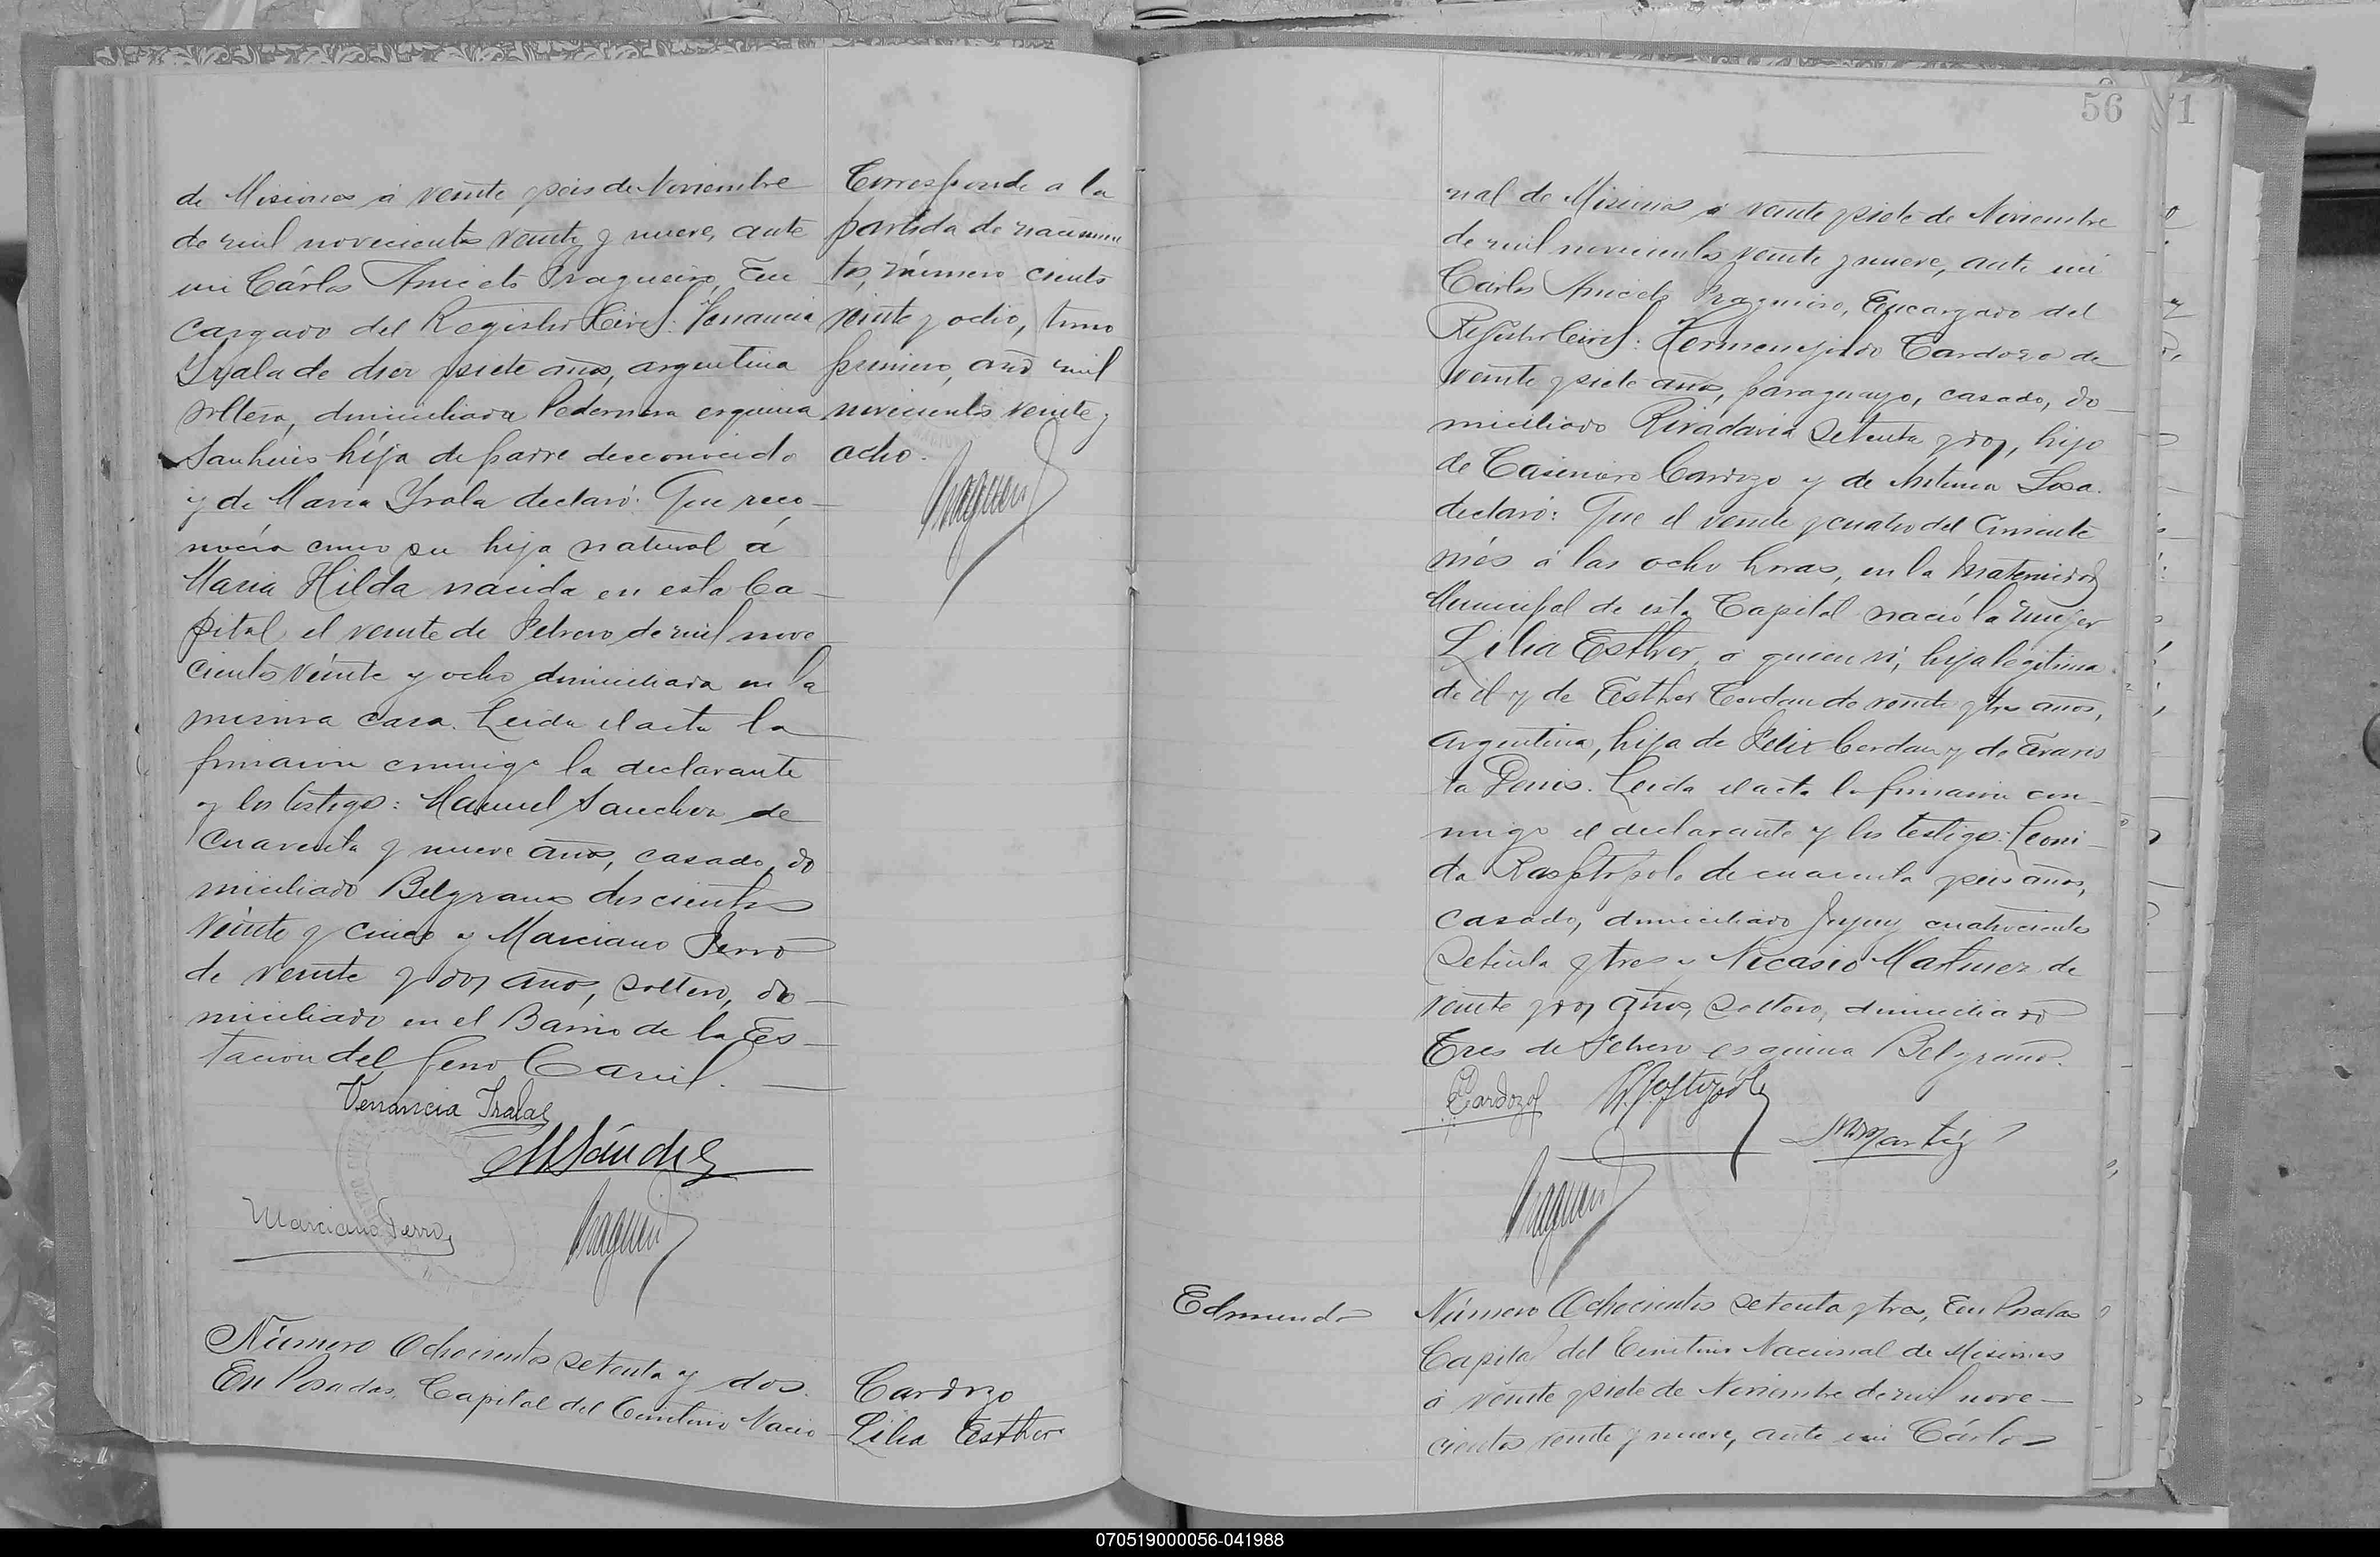 de Misiones á veinte y seis de Noviembre
de mil novecientos veinte y nueve, ante
mi Cárlos Aniceto Fragueiro, En
cargado del Registro Civil: Venancia
Yrala de diez y siete años, argentina
soltera, domiciliada Pedernera esquina
San Luis hija de padre desconocido
y de Maria Yrala declaró: Que reco-
nocia como su hija natural á
Maria Hilda nacida en esta Ca-
pital, el veinte de Febrero de mil nove-
cientos veinte y ocho domiciliada en la
misma casa. Leida el acta la
firmaron conmigo la declarante
y los testigos: Manuel Sanchez de
cuarenta y nueve años, casado, do
miciliado Belgrano doscientos
veinte y cinco y Marciano Ferro
de veinte y dos años, soltero, do-
miciliado en el Barrio de la Es-
tacion del Ferro Carril.
Venancia Iralas
M Sánchez
Marciano Ferro
Número Ochocientos setenta y dos.
En Posadas, Capital del Territorio Nacio-
Corresponde a la
partida de nacimien
tos, número ciento
veinte y ocho, tomo
primero, año mil
novecientos veinte y
ocho.
Cardozo
Lilia Esther
56
1
nal de Misiones á veinte y siete de Noviembre
de mil novecientos veinte y nueve, ante mi
Carlos Aniceto Fragueiro, Encargado del
Registro Civil: Hermenejildo Cardozo de
veinte y siete años, paraguayo, casado, do-
miciliado Rivadavia setenta y dos, hijo
de Casimiro Cardozo y de Antonia Sosa.
declaró: Que el veinte y cuatro del corriente
més á las ocho horas, en la Maternidad
Municipal de esta Capital nació la mujer
Lilia Esther, á quien ví, hija legitima
de él y de Esther Cerdan de veinte y tres años,
argentina, hija de Felix Cerdan y de Evaris
ta Denis. Leida el acta la firmaron con-
migo el declarante y los testigos: Leoni-
da de cuarenta y seis años,
casado, domiciliado Jujuy cuatrocientos
setenta y tres y Nicasio Martinez de
veinte y dos años, soltero, domiciliado
Tres de Febrero esquina Belgrano.
Cardozo
Edmundo
Número Ochocientos setenta y tres, En Posadas
Capital del Territorio Nacional de Misiones
á veinte y siete de Noviembre de mil nove-
cientos veinte y nueve, ante mi Cárlos
070519000056-041988